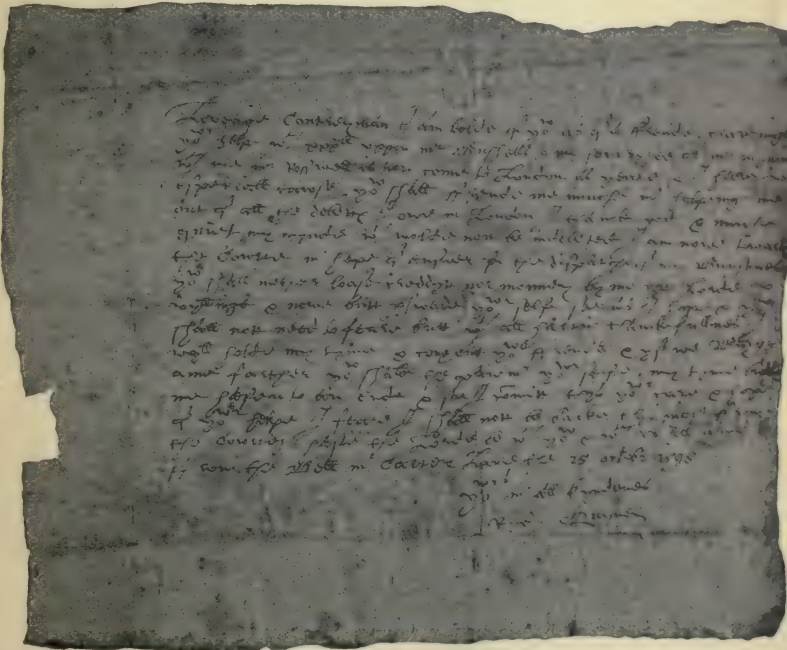 Loveinge Contreyman I am bolde of yow as of a ffrende, craveinge
yowr helpe with xxxll vppon mr Bushells & my securytee or mr myttons
with me mr Rosswell is nott come to London as yeate & I have
especiall cawse. yow shall ffrende me muche in helpeinge me
out of all the debettes I owe in London I thancke god & muche
quiet my mynde wch wolde nott be indebeted I am nowe towardes
the Cowrte in hope of answer for the dispatche of my Buysenes
yow shall nether loase creddytt nor monney by me the Lorde
wyllinge & nowe butt perswade yowr selfe soe as I hope & yow
shall nott need to feare butt with all hartie thanckefullenes
I wyll holde my tyme & content yowr ffrende & yf we Bargaine
farther yow shalbe the paiemaster yowr selfe. my tyme biddes
me hasten to an ende & soe I committ thys yowr care & hope
of yowr helpe I feare I shall nott be backe thys night ffrom
the Cowrte. haste the Lorde be with yow & with vs all amen
ffrom the Bell in Carter Lane the 25 october 1598
yowrs in all kyndenes
Ryc. Quyney